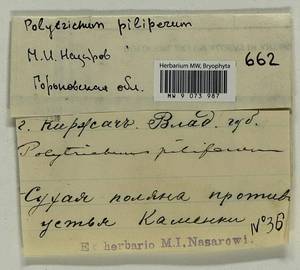 Polytrichum piliferum
М.И. Назаров
Горьковская обл.
Herbarium MW, Bryophyta
MW 9 073 987
662
г. Киржачъ. Влад. губ.
Polytrichum piliferum
Сухая поляна против
устья Каменки
№36
Ex herbario M.I. Nasarowi.